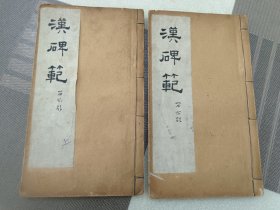 漢碑範
漢碑範